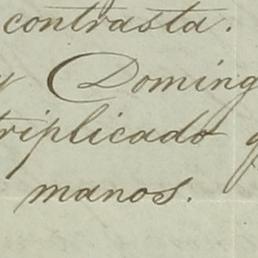 contrasta.
y Doming
triplicado q
manos.